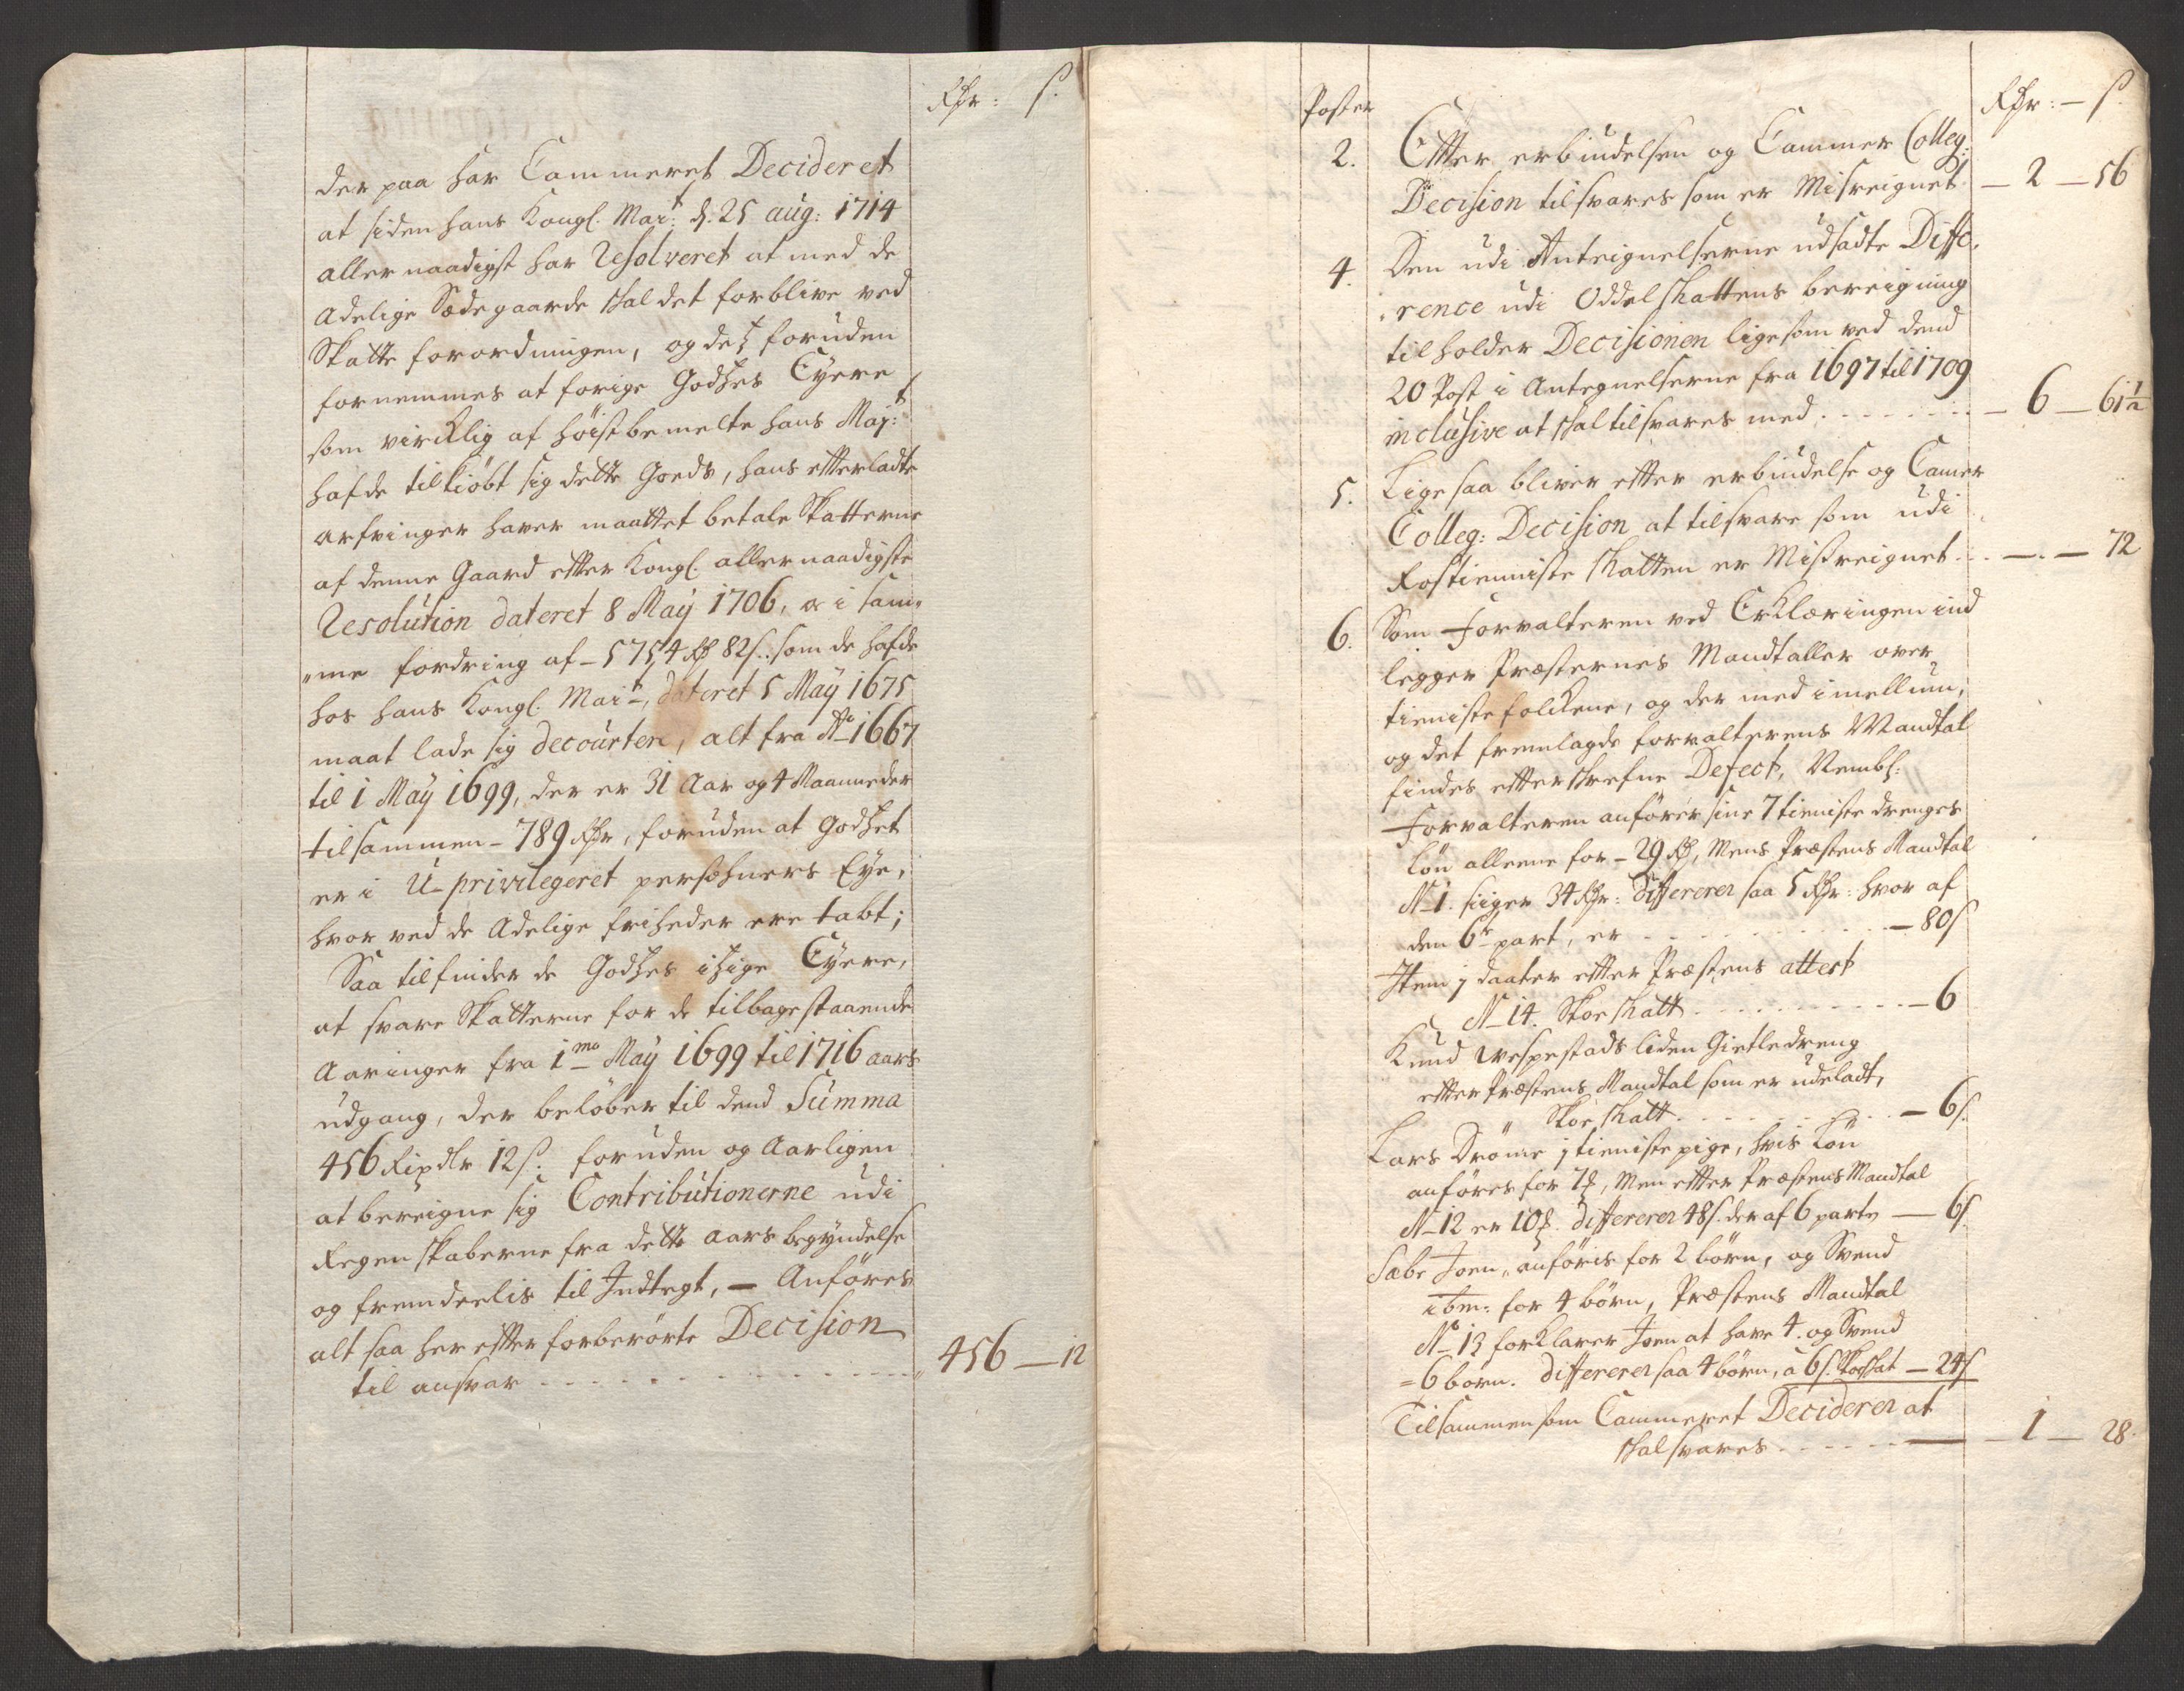 Rdr: ß.
der paa har Cammeret Decideret
at siden hans Kongl. Mait: d: 25 aug: 1714
allernaadigst har Resolveret at med de
Adelige Sædegaarde skal det forblive ved
Skatte forordningen, og detz foruden
fornemmes at forige Godsses Eyere
som vircklig af höistbemelte hans Maj:t
hafde tilkiöbt sig dette Goeds, hans efterladte
arfvinger haver maattet betale Skatterne
af denne Gaard efter Kongl. allernaadigste
Resolution dateret 8 Maÿ 1706, a i sam„
„me fordring af - 5754 Rd 82ß. som de hafde
hos hans Kongl. Mait, dateret 5 Maÿ 1675
maat lade sig decourtere, alt fra Ao 1667
til 1 Maÿ 1699, der er 31 Aar og 4 Maaneder
tilsammen - 789 Rdr, foruden at Godset
er i U-privilegeret persohners Eye,
hvor ved de Adelige friheder ere tabt;
Saa tilfinder de Godsses itzige Eyere,
at svare Skatterne for de tilbagestaaende
Aaringer fra 1mo Maÿ 1699 til 1716 aars
udgang, der belöber til dend Summa
456 Rixdlr 12ß. foruden og Aarligen
at bereigne sig Contributionerne udi
Regenskaberne fra dette aars begyndelse
og fremdeelis til Indtegt, - Anföres
alt saa her efter forberörte Decision
til ansvar 456 - 12
Poster Rdr: - ß.
2. Efter erbindelsen og Cammer Colleg:
Decision tilsvares som er Misreignet - 2 - 56
4. Den udi Antreignelserne udsadte Diffe„
„rence udi Oddelskattens bereigning
tilholder Decisionen ligesom ved dend
20 Post i Antegnelserne fra 1697 til 1709
inclusive at skal tilsvares med - 6 - 61½
5. Lige saa bliver efter erbindelse og Camer
Colleg: Decision at tilsvare som udi
Rostienniste skatten er Misreignet - - 72
6. Som Forvalteren ved Erklæringen ind
legger Præsternes Mandtaller over
tienistefolckene, og der med imellum,
og det fremlagde forvalterens Mandtal
findes efterskrefne Defect, Nembl:
Forvalteren anförer sine 7 tieniste drenges
lön alleene for - 29 Rd, Mens Præstens Mandtal
N-1. siiger 34 Rdr: differerer saa 5 Rdr: hvor af
den 6te part, er - 80ß
Item 1 daater efter Præstens attest
N-14. Skoeskatt - 6
Knud Vespestads liden Gietledreng
efter Præstens Mandtal som er udeladt,
Skoeskatt - 6ß.
Lars Dröme 1 tienistepige, hvis Lön
anföres for 7 , Men efter Præstens Mandtal
N-12 er 10 . differerer 48ß. der af 6 parte - 6ß.
Sæbe Joen, anföris for 2 börn, og Svend
ibm: for 4 börn, Præstens Mandtal
No 13 forklarer Joen at have 4. og Svend
= 6 börn. differerer saa 4 börn, à 6ß. skoskat - 24ß
Tilsammen som Cammeret Deciderer at
skal svares - 1 - 28.